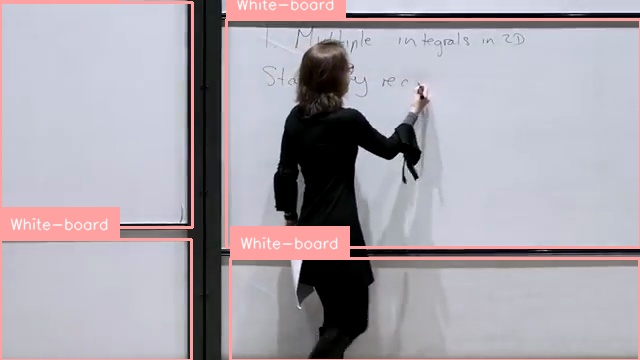 White-board
1. Multiple integrals in 2D
rec
White-board
White-board